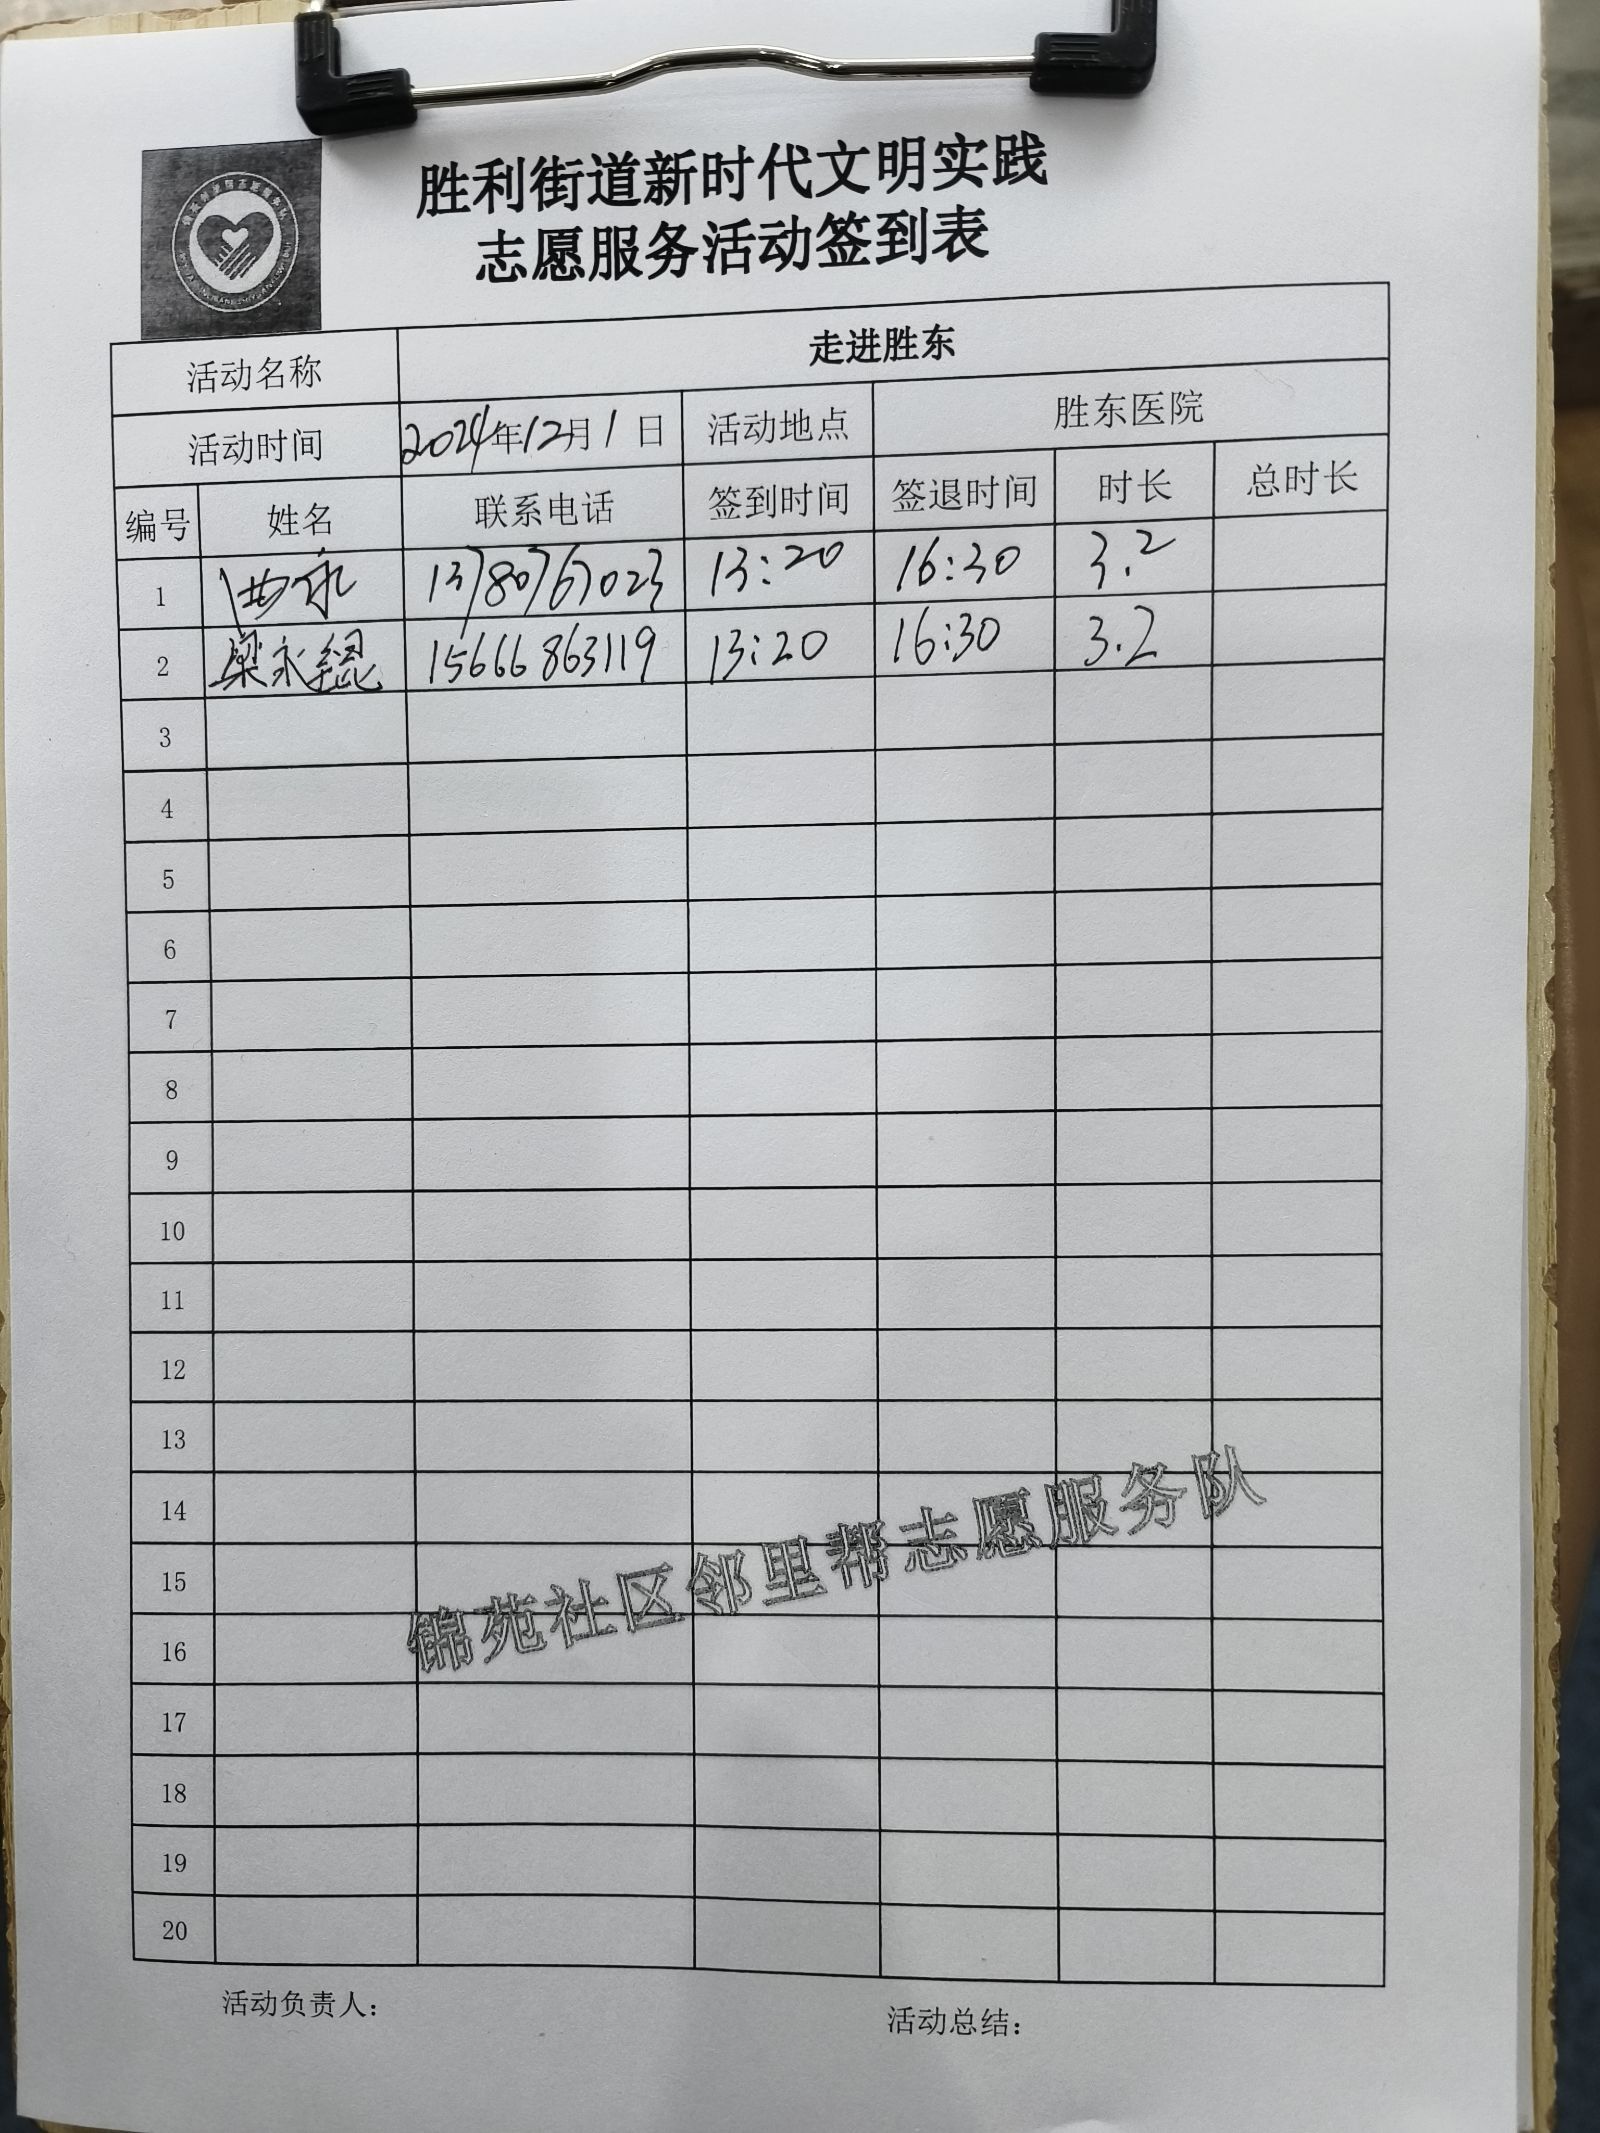 胜利街道新时代文明实践
志愿服务活动签到表
活动名称 走进胜东
活动时间 2024年12月1日 活动地点 胜东医院
编号 姓名 联系电话 签到时间 签退时间 时长 总时长
1 13780767023 13:20 16:30 3.2
2 梁永 15666863119 13:20 16:30 3.2
3
4
5
6
7
8
9
10
11
12
13
14
15
16
17
18
19
20
锦苑社区邻里帮志愿服务队
活动负责人: 活动总结: